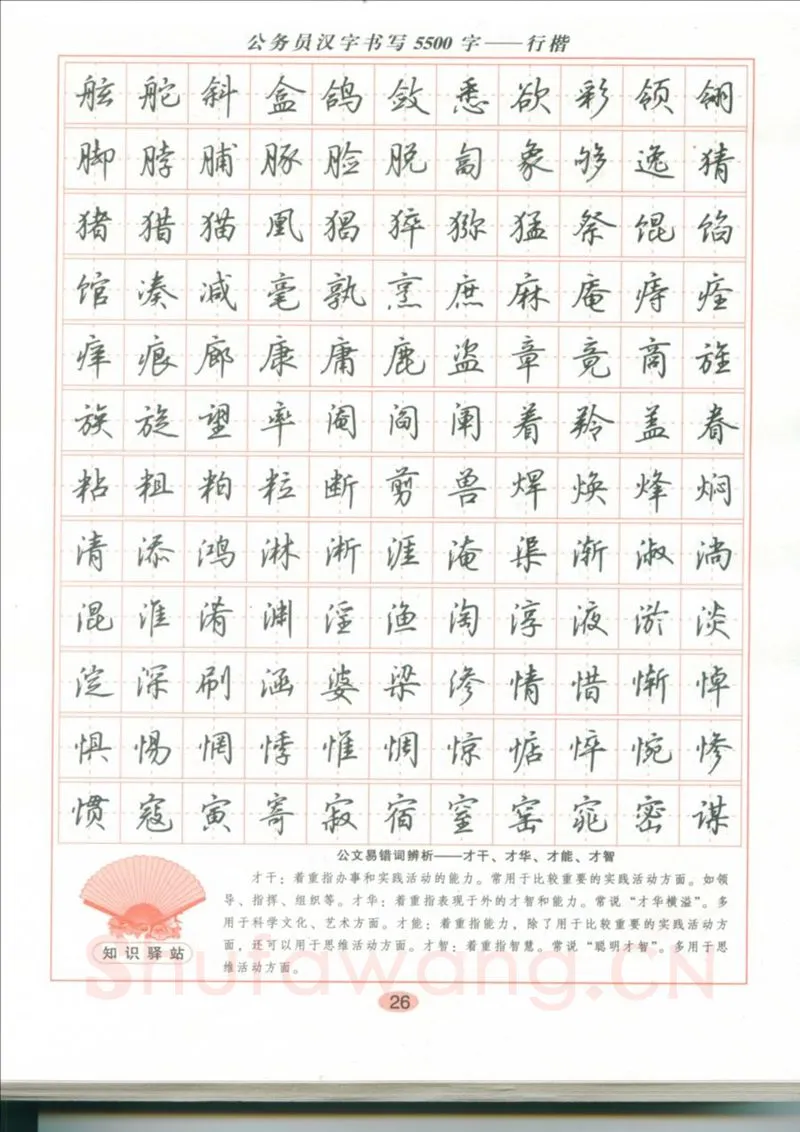 公务员汉字书写5500字——行楷
舷舵斜盒鸽敛悉欲彩领翎
脚脖脯豚脸脱匐象够逸猜
猪猎猫凰猖猝猕猛祭馄馅
馆凑减毫孰烹庶麻庵痔痊
痒痕廊康庸鹿盗章竟商旌
族旋望率阉阎阐着羚盖眷
粘粗粕粒断剪兽焊焕烽焖
清添鸿淋淅涯淹渠渐淑淌
混淮淆渊淫渔淘淳液淤淡
淀深刷涵婆梁渗情惜惭悼
惧惕惘悸惟惆惊惦悴惋惨
惯寇寅寄寂宿窒窑窕密谋
公文易错词辨析——才干、才华、才能、才智
才干：着重指办事和实践活动的能力。常用于比较重要的实践活动方面。如领
导、指挥、组织等。才华：着重指表现于外的才智和能力。常说“才华横溢”。多
用于科学文化、艺术方面。才能：着重指能力，除了用于比较重要的实践活动方
面，还可以用于思维活动方面。才智：着重指智慧。常说“聪明才智”。多用于思
维活动方面。
知识驿站
Shufawang.CN
26